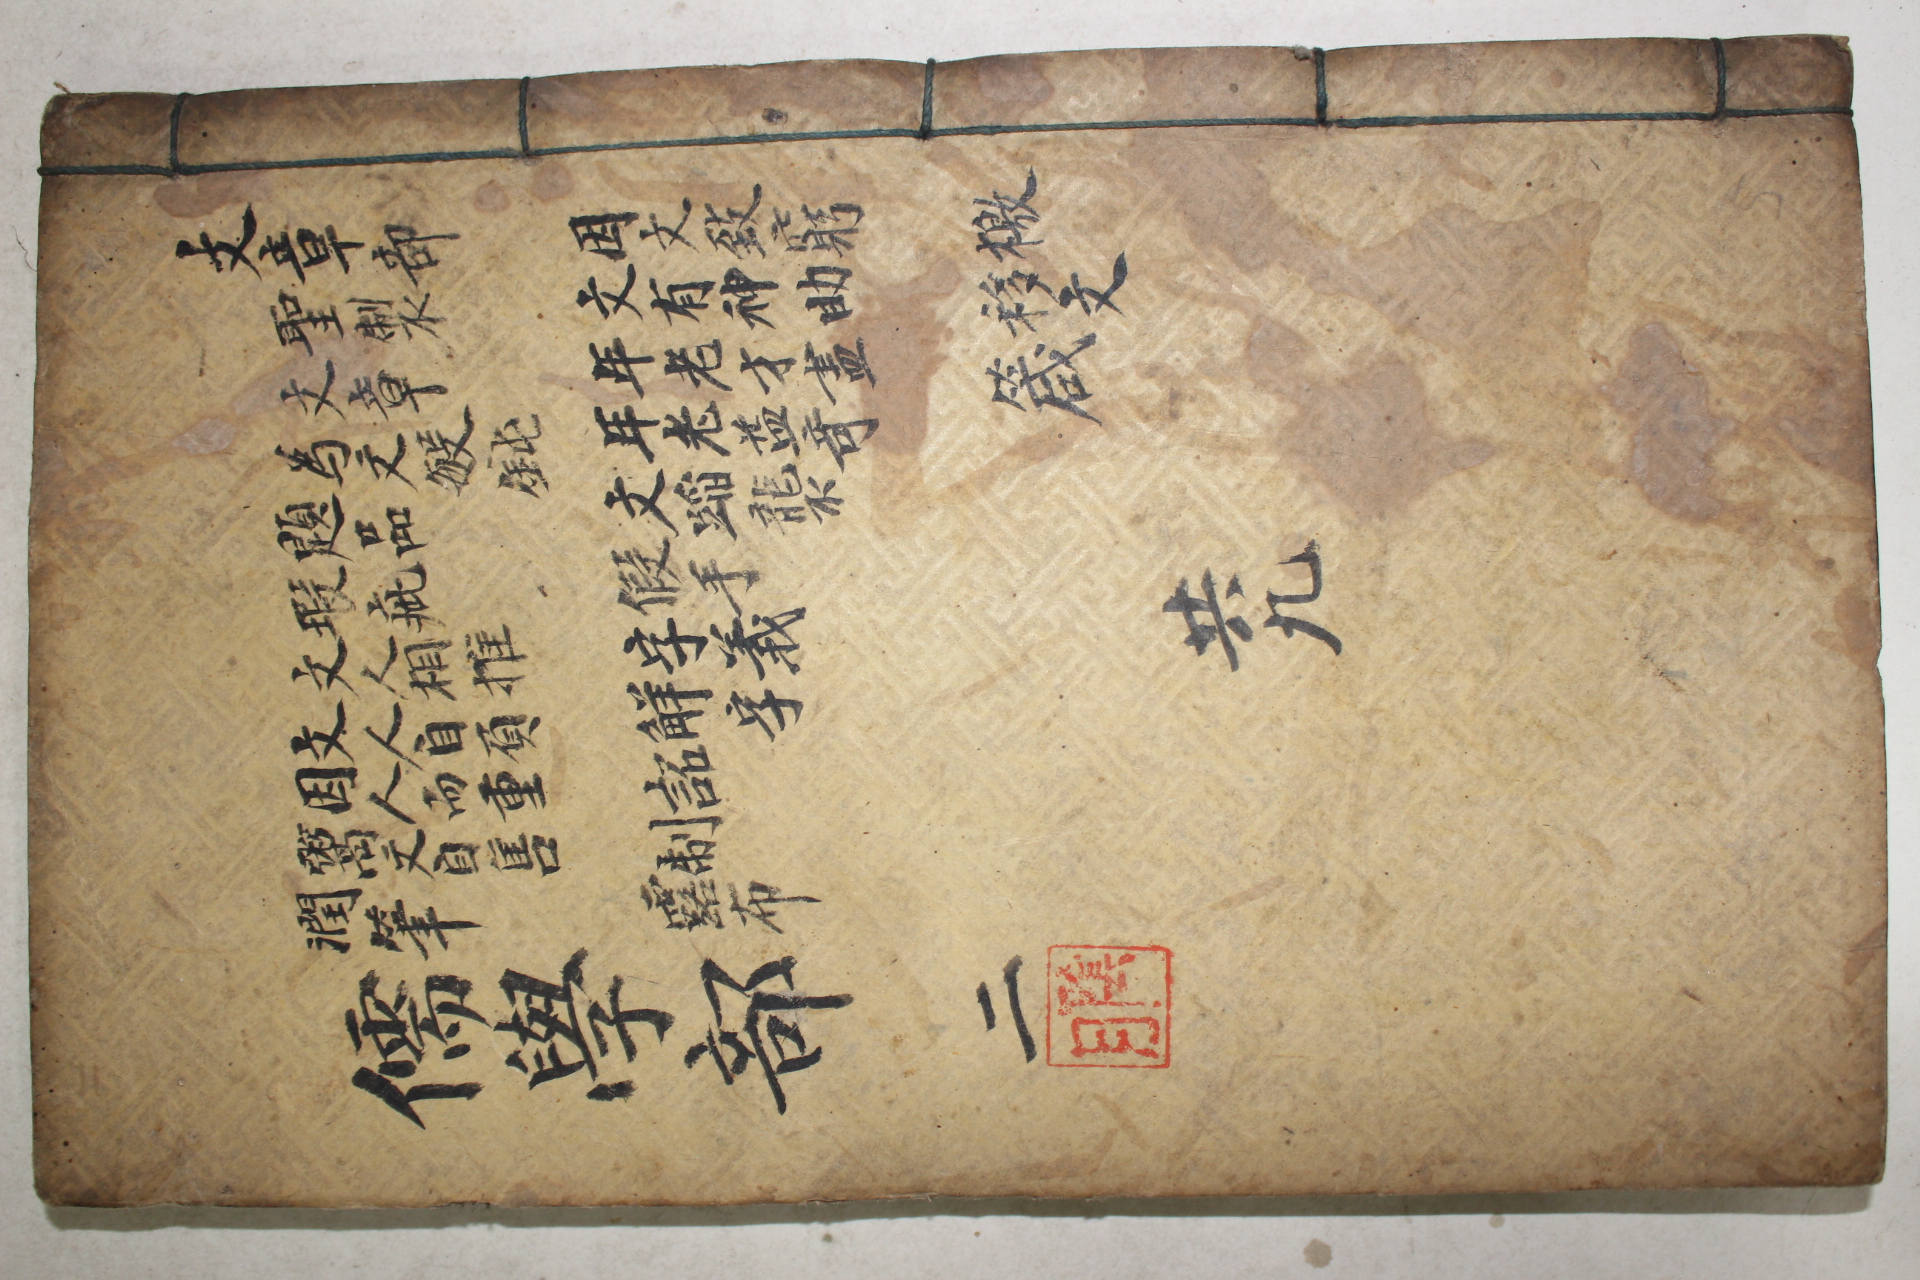 文章部
聖製
文章
為文敏鈍
題品
瑕疵
文人相推
文人自負
因人而重
鬻文自售
潤筆
因文致窮
文有神助
年老才盡
年老益奇
文蹈襲
假手
字義
觧字
詔
制
露布
檄
移文
箴
共九
儒學部
二